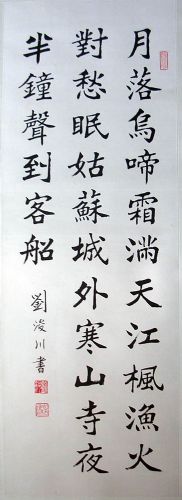 月落烏啼霜滿天江楓漁火
對愁眠姑蘇城外寒山寺夜
半鐘聲到客船
劉浚川書